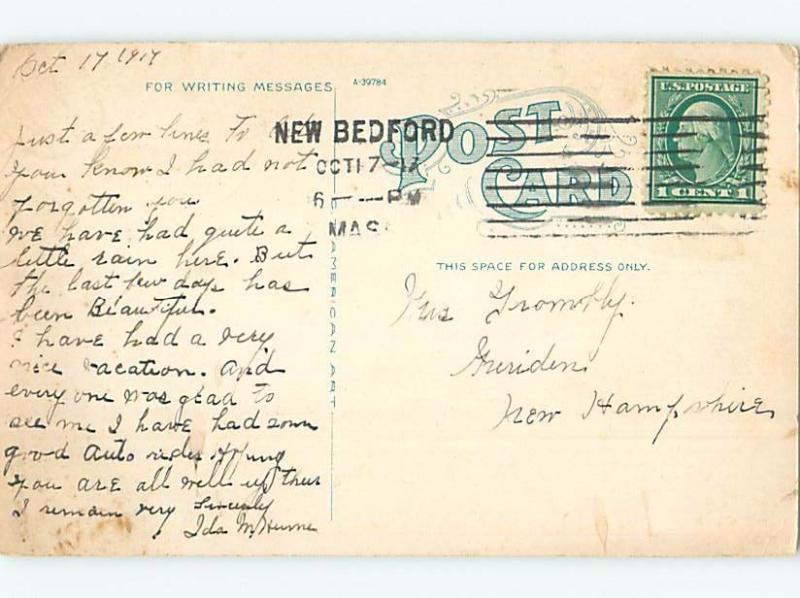 Oct 17 1917
FOR WRITING MESSAGES
A-39784
Just a few lines to let
you know I had not
forgotten you
WE have had quite a
little rain here. But
the last few days has
been Beautiful.
I have had a very
nice vacation. And
every one was glad to
see me I have had some
good Auto rides
you are all well up
I remain very Sincerely
Ida M.
NEW BEDFORD
OCT 17
6 — PM
MAS
POST
CARD
U.S. POSTAGE
1 CENT 1
AMERICAN ART
THIS SPACE FOR ADDRESS ONLY.
Mrs Trombly.
Meriden.
New Hampshire,